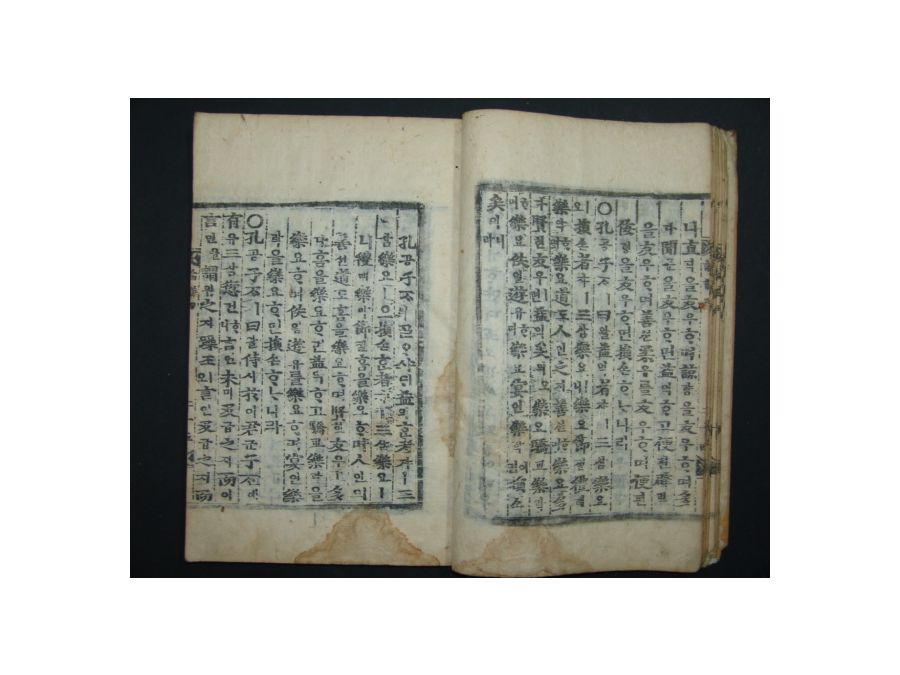 니直딕을友우ᄒᆞ며諒량을友우ᄒᆞ며多
다聞문을友우ᄒᆞ면益익ᄒᆞ고便편辟벽
을友우ᄒᆞ며善션柔유를友우ᄒᆞ며便편
佞녕을友우ᄒᆞ면損손ᄒᆞᄂᆞ니라
○孔공子ᄌᆞㅣ曰왈益익者쟈ㅣ三삼樂요
오損손者쟈ㅣ三삼樂요ㅣ니樂요節졀禮례
樂악ᄒᆞ며樂요道도人인之지善션ᄒᆞ며樂요多
다賢현友우ㅣ면益익矣의오樂요驕교樂락
ᄒᆞ며樂요佚일遊유ᄒᆞ며樂요宴연樂락이면損손
矣의니라
孔공子ᄌᆞㅣᄀᆞᆯᄋᆞ샤ᄃᆡ益익ᄒᆞᆫ者쟈ㅣ三
삼樂요ㅣ오損손ᄒᆞᆫ者쟈ㅣ三삼樂요ㅣ
니禮례樂악節졀홈을樂요ᄒᆞ며人인의
善션道도홈을樂요ᄒᆞ며賢현友우ㅣ多
다홈을樂요ᄒᆞ면益익ᄒᆞ고驕교樂락을
樂요ᄒᆞ며佚일遊유를樂요ᄒᆞ며宴연樂
락을樂요ᄒᆞ면損손ᄒᆞᄂᆞ니라
○孔공子ᄌᆞㅣ曰왈侍시於어君군子ᄌᆞ애
有유三삼愆건ᄒᆞ니言언未미及급之지而이
言언을謂위之지躁조ㅣ오言언及급之지而